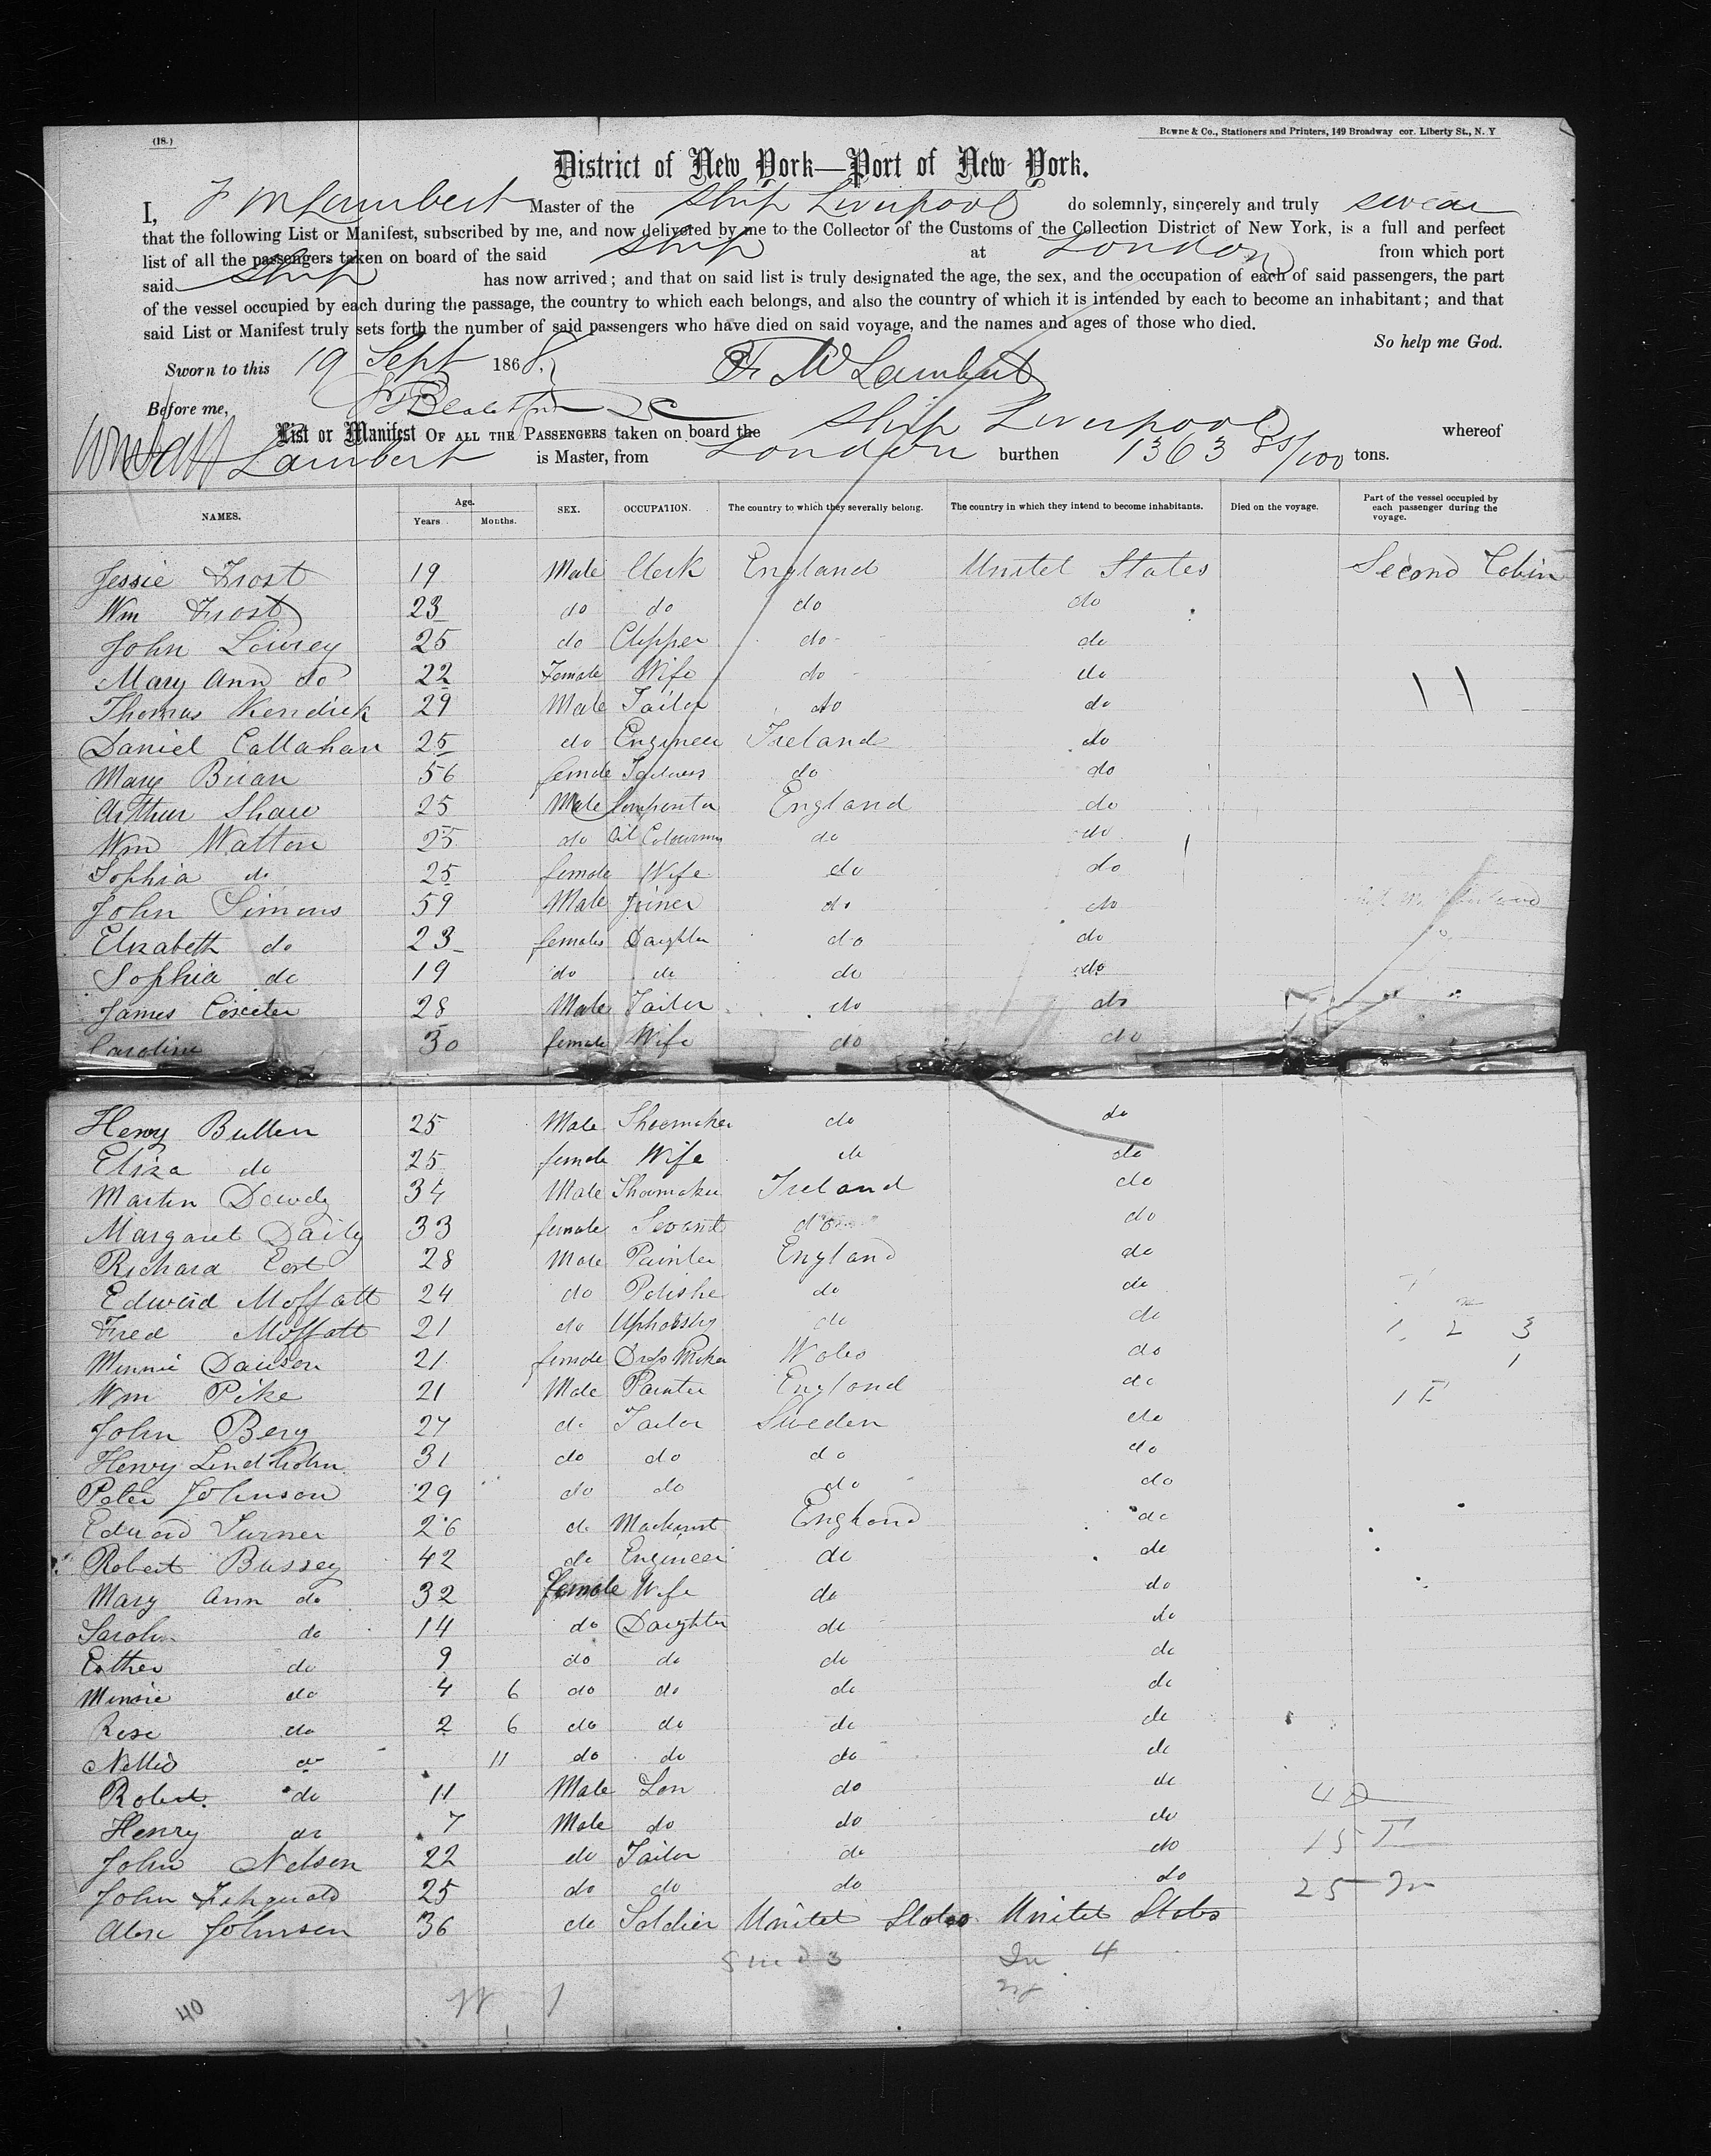 (18.)
Bowne & Co., Stationers and Printers, 149 Broadway cor. Liberty St., N. Y
District of New York—Port of New York.
I, F M Lambert Master of the Ship Liverpool do solemnly, sincerely and truly swear
that the following List or Manifest, subscribed by me, and now delivered by me to the Collector of the Customs of the Collection District of New York, is a full and perfect
list of all the passengers taken on board of the said Ship at London from which port
said Ship has now arrived; and that on said list is truly designated the age, the sex, and the occupation of each of said passengers, the part
of the vessel occupied by each during the passage, the country to which each belongs, and also the country of which it is intended by each to become an inhabitant; and that
said List or Manifest truly sets forth the number of said passengers who have died on said voyage, and the names and ages of those who died.
So help me God.
Sworn to this 19 Sept 1868. F M Lambert
Before me,
List or Manifest OF ALL THE PASSENGERS taken on board the Ship Liverpool whereof
Lambert is Master, from London burthen 1363 85/100 tons.
NAMES. Age. Years. Months. SEX. OCCUPATION. The country to which they severally belong. The country in which they intend to become inhabitants. Died on the voyage. Part of the vessel occupied by each passenger during the voyage.
Jessie Frost 19 Male Clerk England Unitet States Second Cabin
Wm Frost 23 do do do do
John Lowrey 25 do Clipper do do
Mary Ann do 22 Female Wife do do
Thomas Kendick 29 Male Tailor do do
Daniel Callahan 25 do Engineer Ireland do
Mary Brian 56 female Tailress do do
Arthur Shaw 25 Male Carpenter England do
Wm Walton 25 do Oil Colourman do do
Sophia do 25 female Wife do do
John Simons 59 Male Joiner do do
Elizabeth do 23 females Daughter do do
Sophia do 19 do do do do
James Coxeter 28 Male Tailor do do
Caroline 30 female Wife do do
Henry Bullen 25 Male Shoemaker do do
Eliza do 25 female Wife do do
Martin Dowdy 34 Male Shoemaker Ireland do
Margaret Daily 33 female Servant do do
Richard 28 Male Painter England do
Edward Moffatt 24 do Polisher do do
Fred Moffatt 21 do Upholster do do
1 2 3
Minnie Dawson 21 female Dress Maker Wales do 1
Wm Pike 21 Male Painter England do
John Berg 27 do Tailor Sweden do
Henry Lindholm 31 do do do do
Peter Johnson 29 do do do do
Edward Turner 26 do Machinist England do
Robert Bussey 42 do Engineer do do
Mary Ann do 32 female Wife do do
Sarah do 14 do Daughter do do
Esther do 9 do do do do
Minnie do 4 6 do do do do
Rose do 2 6 do do do do
Nellie do 11 do do do do
Robert do 11 Male Son do do
Henry do 7 Male do do do
John Nelson 22 do Tailor do do
John Fitzgerald 25 do do do do
Alex Johnson 36 do Soldier Unitet States Unitet States
4
40